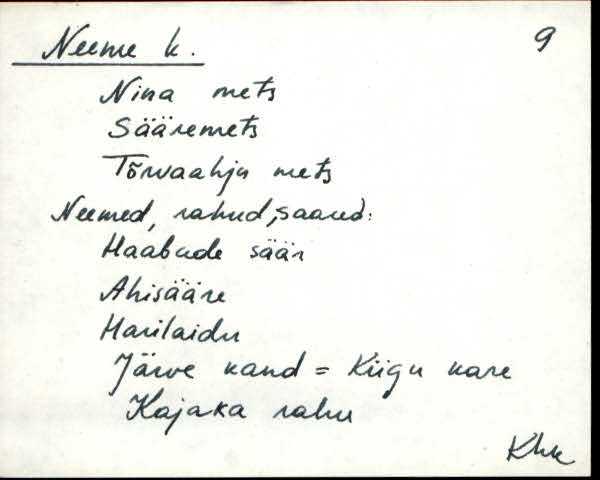 Neeme k. 9
Nina mets
Sääremets
Tõrvaahju mets
Neemed, rahud, saared:
Haabude säär
Ahisääre
Harilaidu
Järve kand = Kiigu kare
Kajaka rahu
Khk